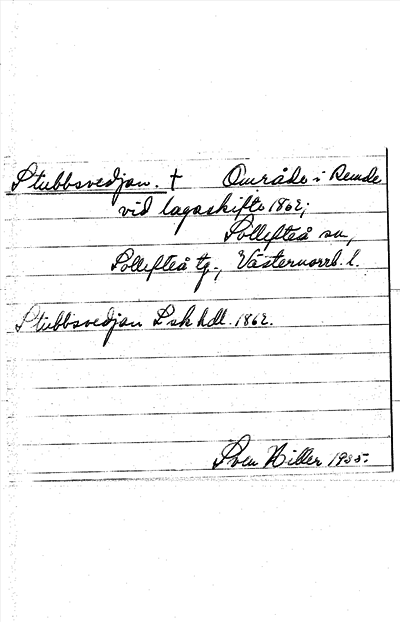 Stubbsvedjan. † Område i Remde
vid lagaskifte 1862;
Sollefteå sn,
Sollefteå tg., Västernorrl. l.
Stubbsvedjan Lsk hdl. 1862.
Sven Hiller 1935.